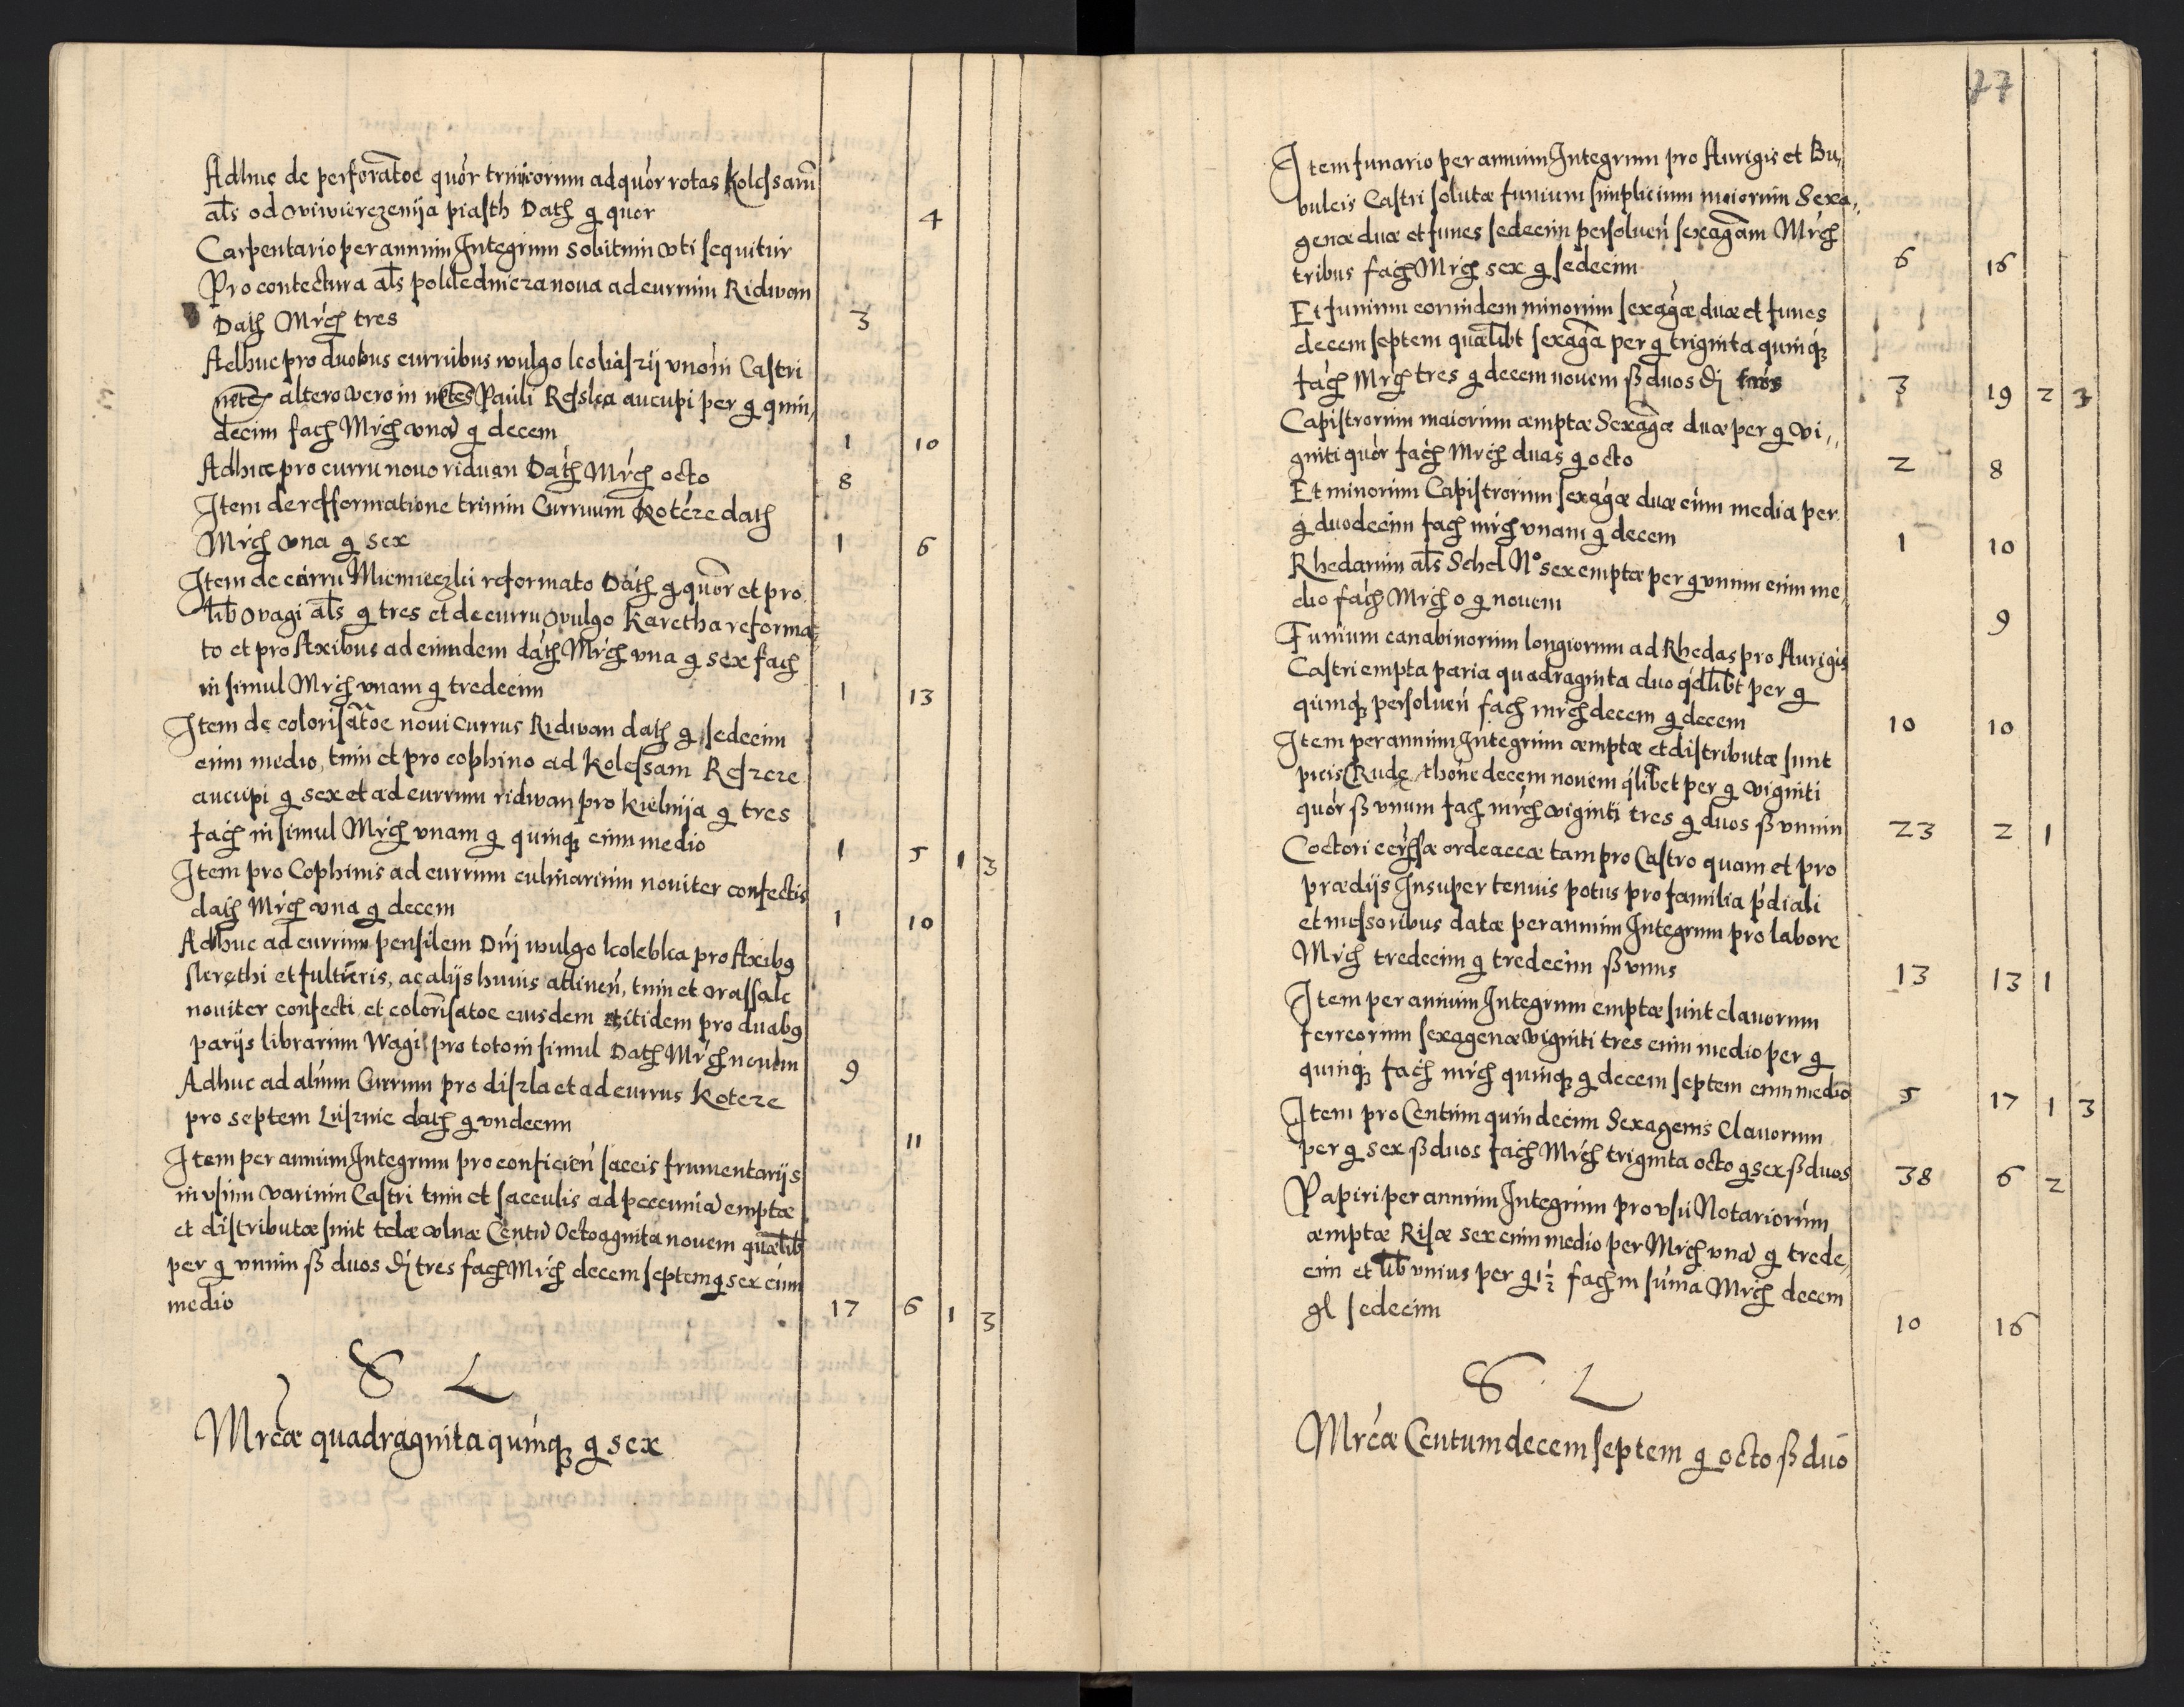 Adhuc de perforãtoe quór truncorum ad quór rotas Kolessarũ
als od wiwierczenija piasth Dath g quor 4
Carpentario per annum Integrum sobitum vti sequitur
Pro contectura als poklednicza noua ad currum Ridwan
Dath Mrch tres 3
Adhuc pro duobus curribus wulgo koliaszij vno in Castri
altero vero in Pauli Reslea aucupi per g quin„
decim fach Mrch vnã g decem 1 10
Adhuc pro curru nouo riduan Dath Mrch octo 8
Item de refformatione trium Curruum Kotcze dath
Mrch vna g sex 1 6
Item de curru Miemieczki reformato Dath g quor et pro
lib Vvagi als g tres et de curru vulgo Karetha reforma„
to et pro Axibus ad eundem dath Mrch vna g sex fach
in simul Mrch vnam g tredecim 1 13
Item de colorisãtoe noui currus Ridwan dath g sedecim
cum medio, tum et pro cophino ad Kolessam Reszcze
aucupi g sex et ad currum ridwan pro Kielnija g tres
fach in simul Mrch vnam g quinq cum medio 1 5 1 3
Item pro Cophinis ad currum culinarium nouiter confectis
dath Mrch vna g decem 1 10
Adhuc ad currum pensilem Dnj wulgo kolebka pro Axibg
et fultreris, ac alijs huius attinen, tum et
nouiter confecti et colorisatoe eiusdem itidem pro duabg
parijs librarum Wagi pro toto in simul Dath Mrch nouem 9
Adhuc ad alium Currum pro diszla et ad currus Kotcze
pro septem Lusznie dath g vndecim 11
Item per annum Integrum pro conficien saccis frumentarijs
in vsum varium Castri tum et sacculis ad peccuniã emptæ
et distributæ sunt telæ vlnæ Centũ Octoagginta nouem quælib
per g vnum ß duos dj tres fach Mrch decem septem g sex cum
medio 17 6 1 3
S L
Mrcæ quadraginta quinq g sex
77
Item funario per annum Integrum pro Aurigis et Bu„
bulcis Castri solutæ funium simplicium maiorum Sexa„
genæ duæ et funes sedecim persoluen sexagãm Mrch
tribus fach Mrch sex g sedecim 6 16
Et funium eorundem minorum sexagæ duæ et funes
decem septem quælibt sexagã per g triginta quinq
fach Mrch tres g decem nouem ß duos dj tres 3 19 2 3
Capistrorum maiorum æmptæ Sexagæ duæ per g vi„
gniti quór fach Mrch duas g octo 2 8
Et minorum Capistrorum sexagæ duæ cum media per
g duodecim fach mrch vnam g decem 1 10
Rhedarum als Schel No sex emptæ per g vnum cum me„
dio fach Mrch o g nouem 9
Funium canabinorum longiorum ad Rhedas pro Aurigis
Castri empta paria quadraginta duo qdlibt per g
quinq persoluen fach mrch decem g decem 10 10
Item per annum Integrum æmptæ et distributæ sunt
picis Crudę thone decem nouem qlibet per g vigniti
quór ß vnum fach mrch viginti tres g duos ß vnum 23 2 1
Coctori ordeaceæ tam pro Castro quam et pro
prædijs Insuper tenuis potus pro familia pdiali
et messoribus datæ per annum Integrum pro labore
Mrch tredecim g tredecim ß vnus 13 13 1
Item per annum Integrum emptæ sunt clauorum
ferreorum sexagenæ vigniti tres cum medio per g
quinq fach mrch quinq g decem septem cum medio 5 17 1 3
Item pro Centum quindecim Sexagenis Clauorum
per g sex ß duos fach Mrch triginta octo g sex ß duos 38 6 2
Papiri per annum Integrum pro vsu Notariorum
æmptæ Risæ sex cum medio per Mrch vnã g trede„
cim et lib vnius per g 1½ fach in sum̃a Mrch decem
gl sedecim 10 16
S L
Mrcæ Centum decem septem g octo ß duo